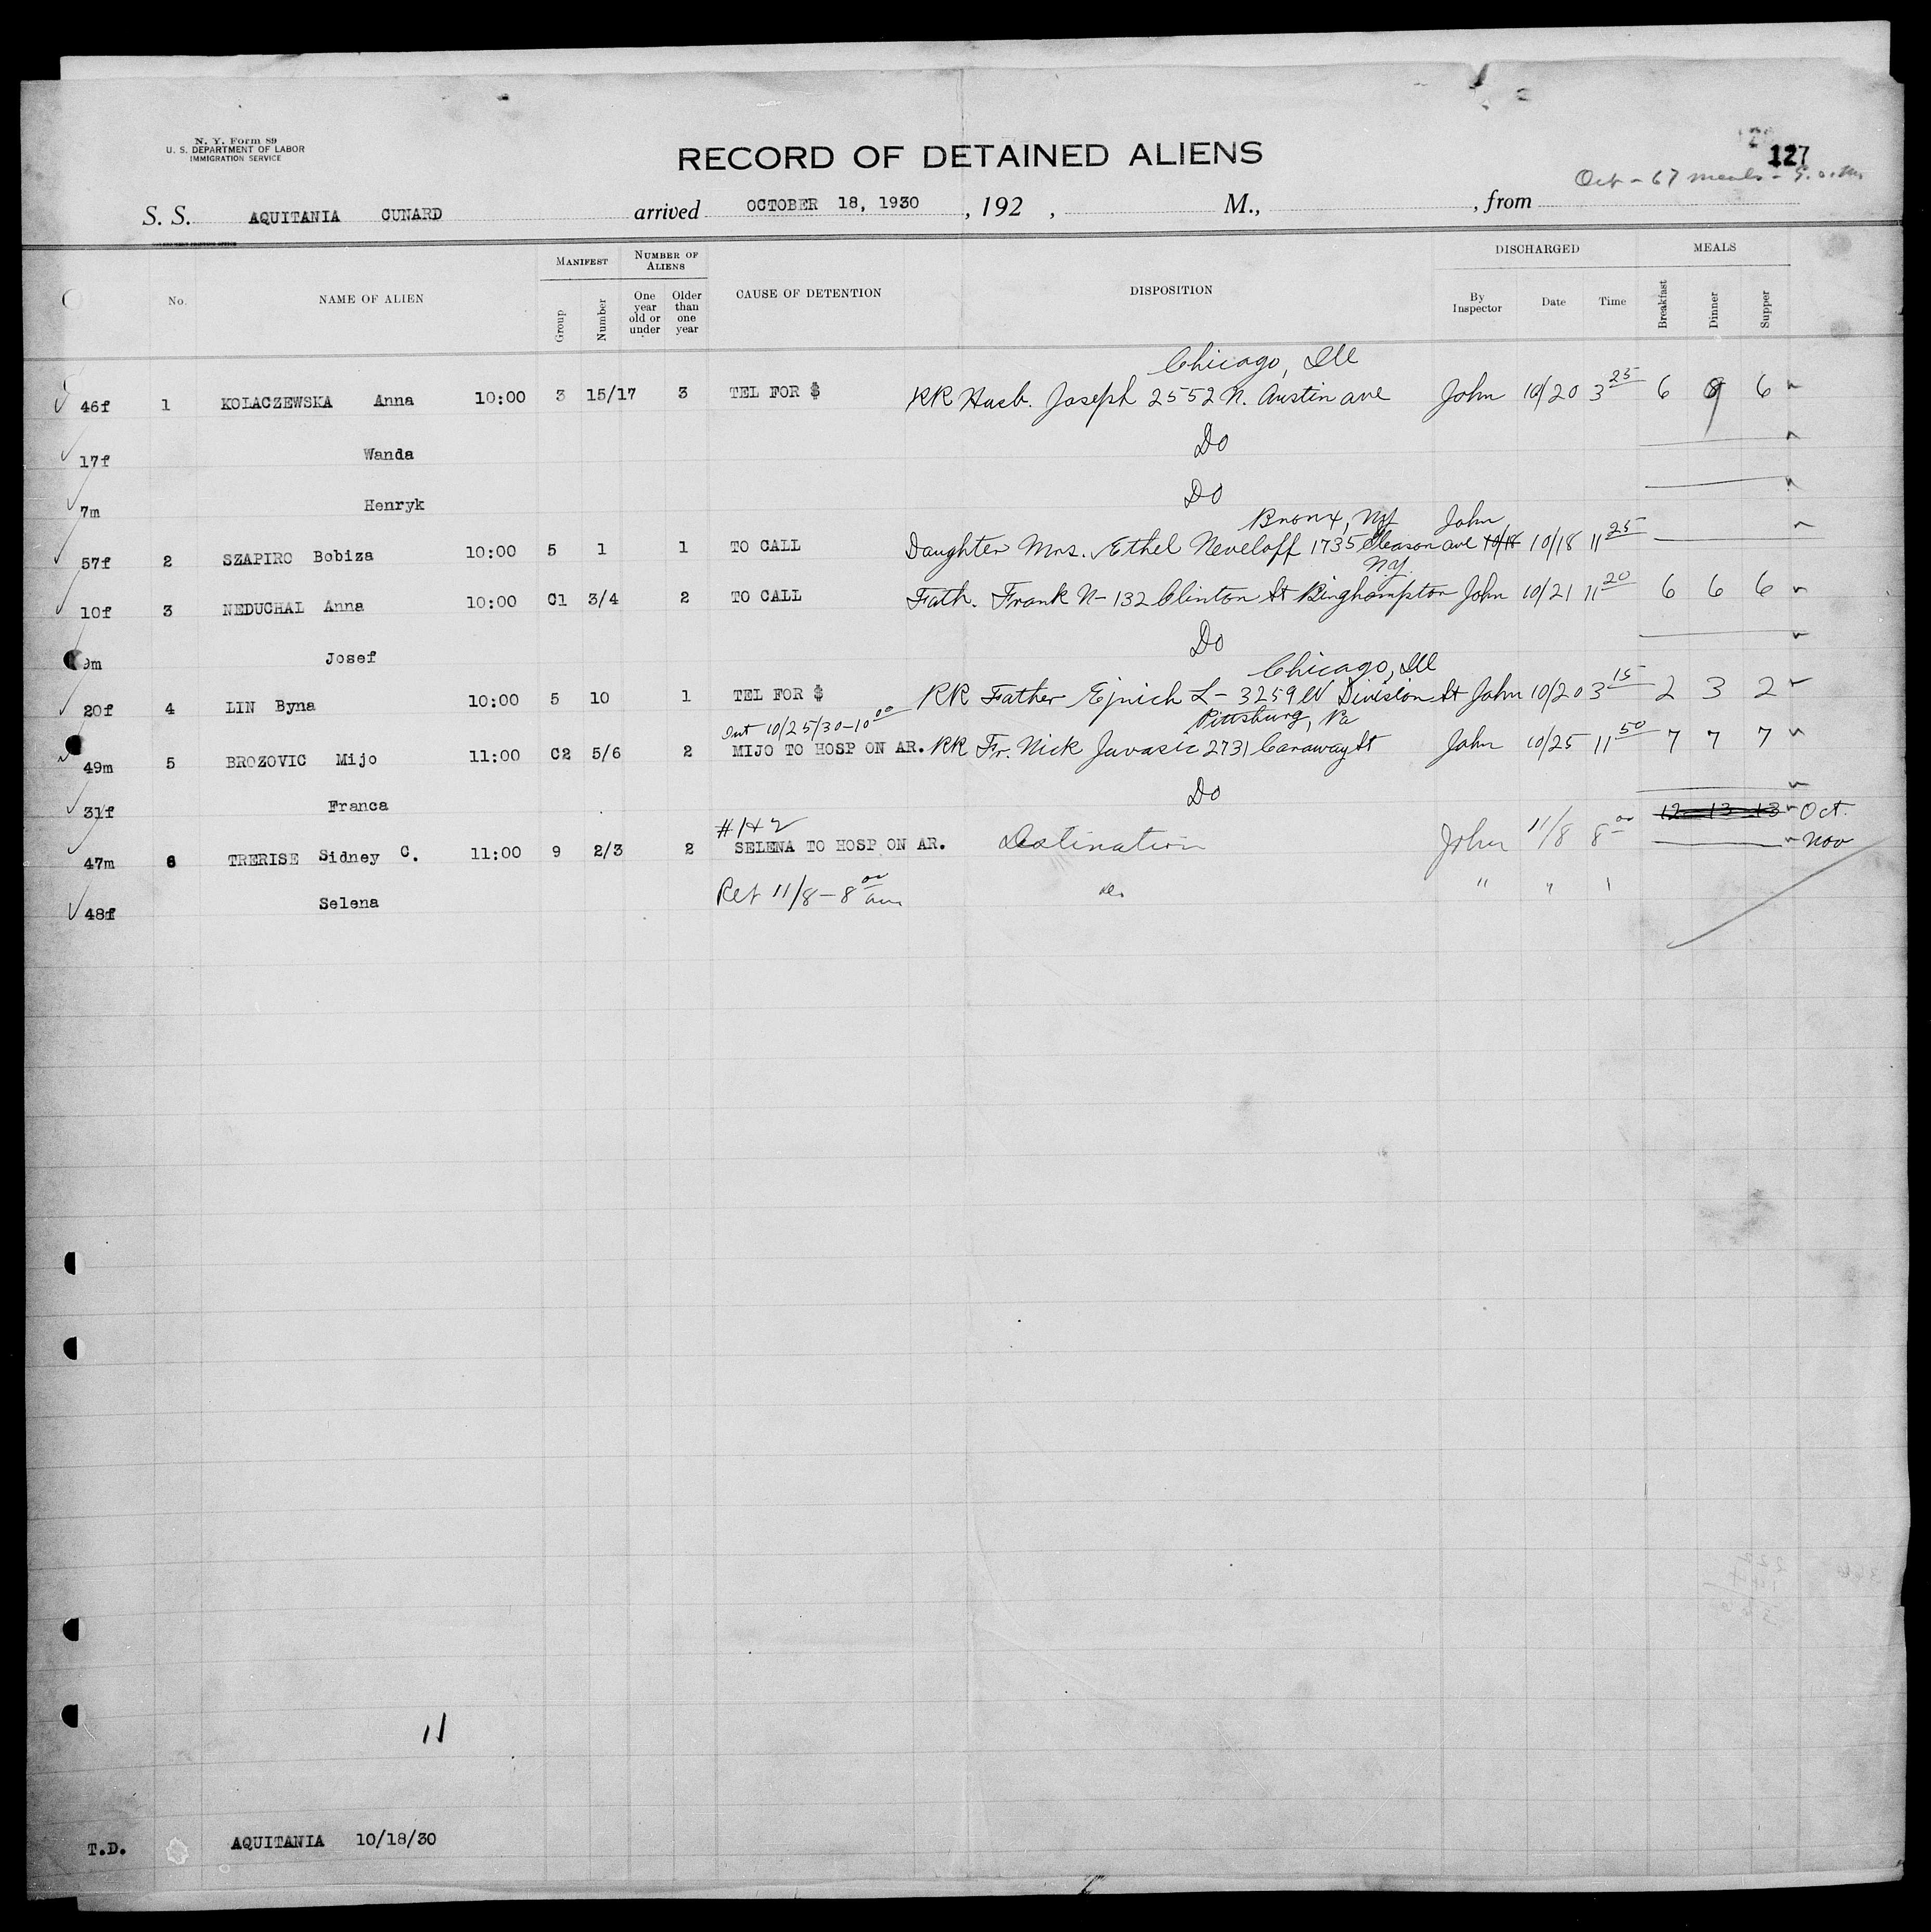 N. Y. Form 89
U. S. DEPARTMENT OF LABOR
IMMIGRATION SERVICE
RECORD OF DETAINED ALIENS
127
Oct - 67 meals -
S. S. AQUITANIA CUNARD arrived OCTOBER 18, 1930, 192 , M., , from
GOVERNMENT PRINTING OFFICE
No. NAME OF ALIEN MANIFEST NUMBER OF ALIENS CAUSE OF DETENTION DISPOSITION DISCHARGED MEALS
Group Number One year old or under Older than one year By Inspector Date Time Breakfast Dinner Supper
Chicago, Ill
46f 1 KOLACZEWSKA Anna 10:00 3 15/17 3 TEL FOR $ RR Husb. Joseph 2552 N. Austin ave John 10/20 3 25 6 9 6
17f Wanda Do
7m Henryk Do
Bronx, NY John
57f 2 SZAPIRO Bobiza 10:00 5 1 1 TO CALL Daughter Mrs. Ethel Neveloff 1735 Gleason ave 10/18 10/18 11 25
N.Y.
10f 3 NEDUCHAL Anna 10:00 C1 3/4 2 TO CALL Fath. Frank N- 132 Clinton St Binghampton John 10/21 11 20 6 6 6
9m Josef Do
Chicago, Ill
20f 4 LIN Byna 10:00 5 10 1 TEL FOR $ RR Father Ejnich L- 3259 W Division St John 10/20 3 15 2 3 2
Out 10/25/30-10 00 Pittsburg, Pa
49m 5 BROZOVIC Mijo 11:00 C2 5/6 2 MIJO TO HOSP ON AR. RR Fr. Nick Javasic 2731 Caraway St John 10/25 11 50 7 7 7
31f Franca Do 12 13 13 Oct.
#1+2
47m 6 TRERISE Sidney C. 11:00 9 2/3 2 SELENA TO HOSP ON AR. Destination John 11/8 8 00 Nov
48f Selena Ret 11/8-8 00 am do. " " "
11
T.D. AQUITANIA 10/18/30